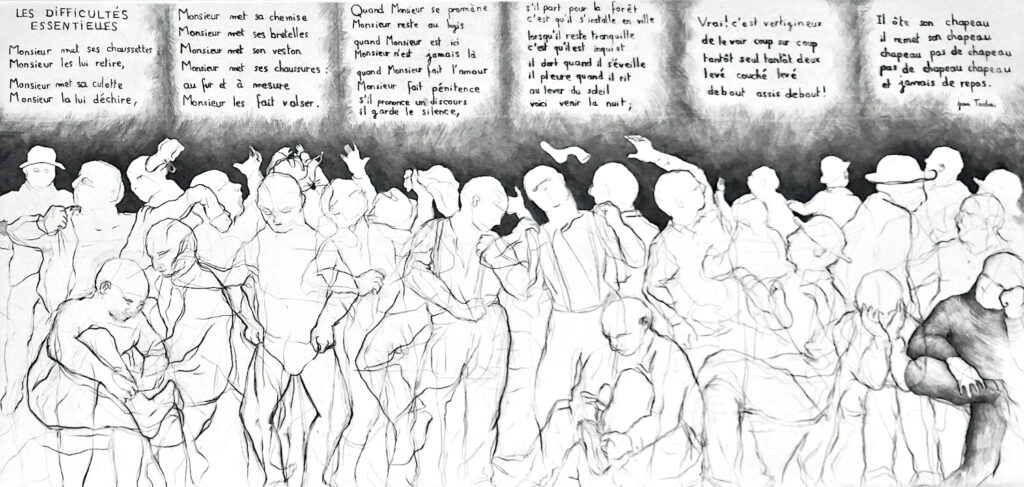 LES DIFFICULTÉS
ESSENTIELLES
Monsieur met ses chaussettes
Monsieur les lui retire,
Monsieur met sa culotte
Monsieur la lui déchire,
Monsieur met sa chemise
Monsieur met ses bretelles
Monsieur met son veston
Monsieur met ses chaussures :
au fur et à mesure
Monsieur les fait valser.
Quand Monsieur se promène
Monsieur reste au logis
quand Monsieur est ici
Monsieur n'est jamais là
quand Monsieur fait l'amour
Monsieur fait pénitence
s'il prononce un discours
il garde le silence,
s'il part pour la forêt
c'est qu'il s'installe en ville
lorsqu'il reste tranquille
c'est qu'il est inquiet
il dort quand il s'éveille
il pleure quand il rit
au lever du soleil
voici venir la nuit ;
Vrai! c'est vertigineux
de le voir coup sur coup
tantôt seul tantôt deux
levé couché levé
debout assis debout!
Il ôte son chapeau
il remet son chapeau
chapeau pas de chapeau
pas de chapeau chapeau
et jamais de repos.
Jean Tardieu